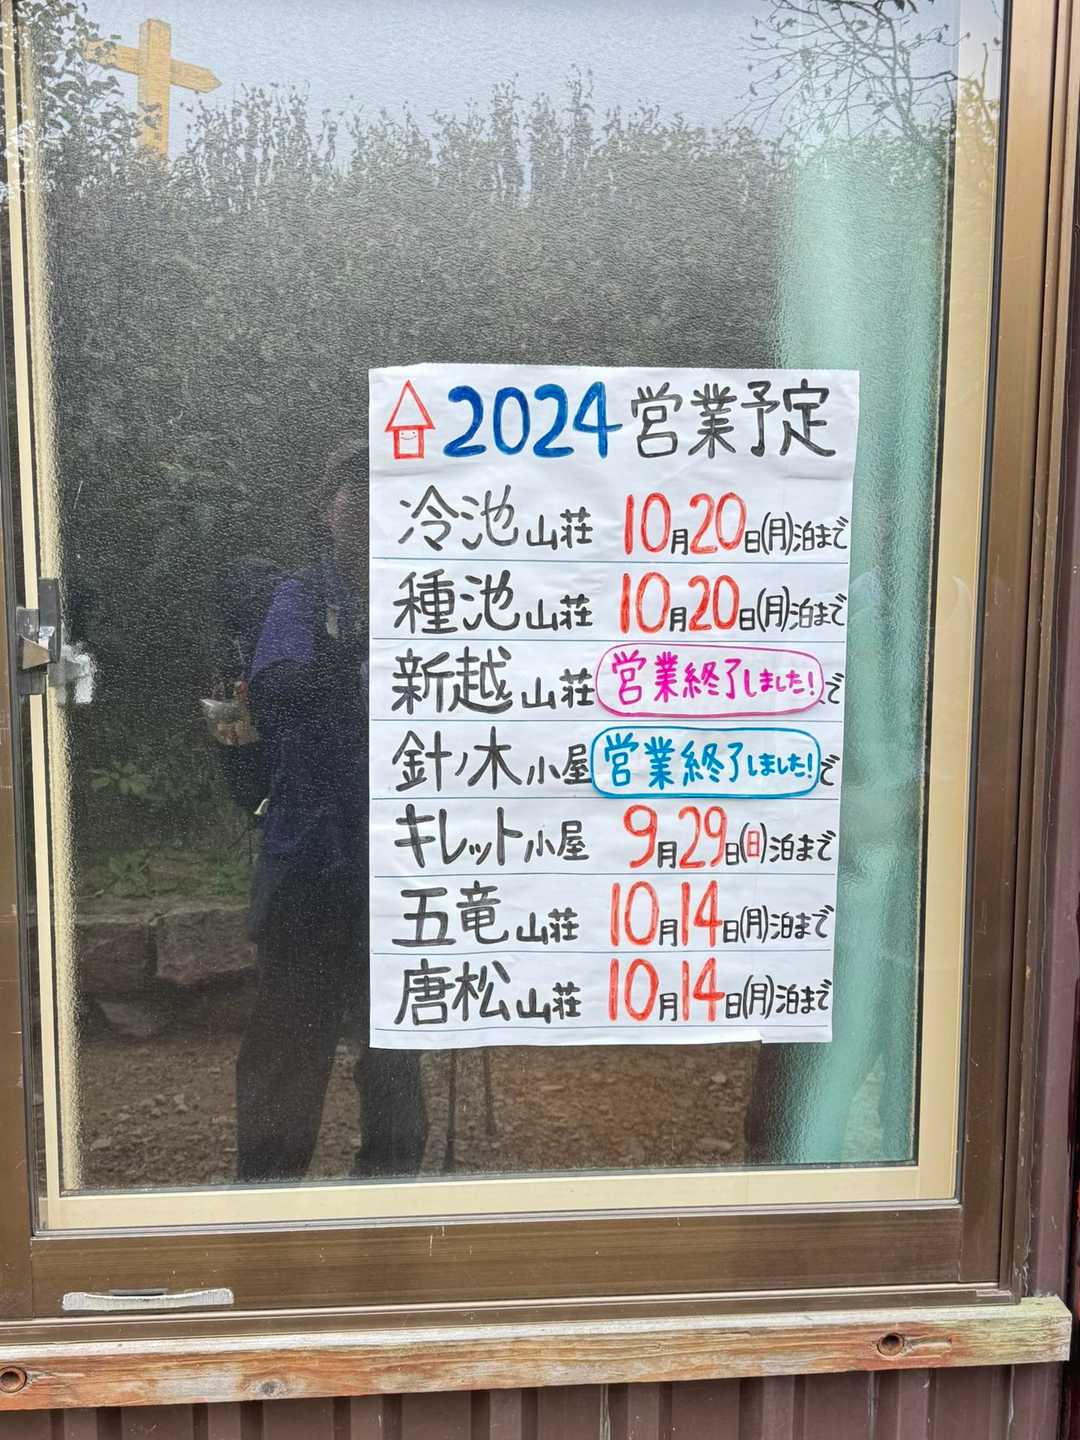 2024 営業予定
冷池山荘 10月20日(月)泊まで
種池山荘 10月20日(月)泊まで
新越山荘 営業終了しました! で
針ノ木小屋 営業終了しました! で
キレット小屋 9月29日(日)泊まで
五竜山荘 10月14日(月)泊まで
唐松山荘 10月14日(月)泊まで